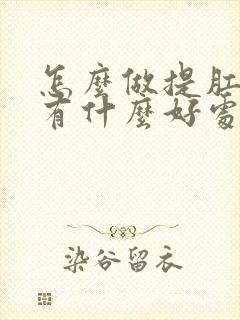 怎麼做提肛
有什麼好處
染谷留衣